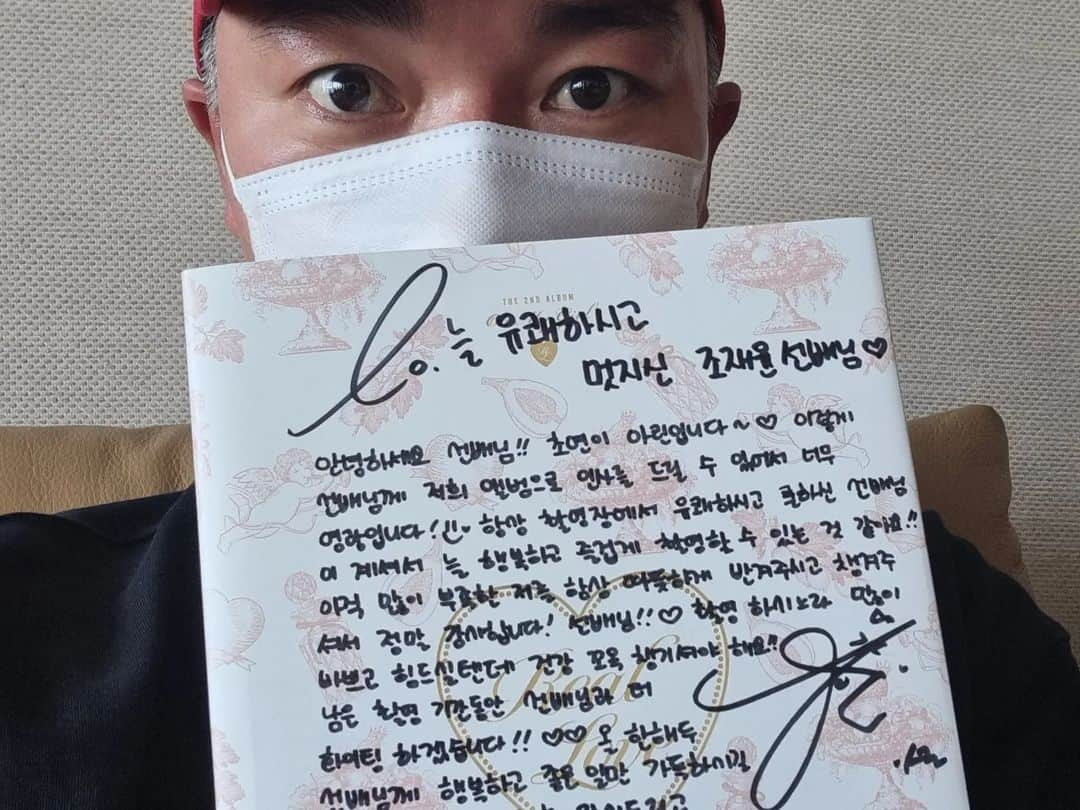 THE 2ND ALBUM
To. 늘 유쾌하시고
멋지신 조재윤 선배님♡
안녕하세요 선배님!! 초연이 아린입니다~♡ 이렇게
선배님께 저희 앨범으로 인사를 드릴 수 있어서 너무
영광입니다! 항상 촬영장에서 유쾌하시고 쿨하신 선배님
이 계셔서 늘 행복하고 즐겁게 촬영할 수 있는 것 같아요!!
아직 많이 부족한 저를 항상 따뜻하게 반겨주시고 챙겨주
셔서 정말 감사합니다! 선배님!!♡ 촬영 하시느라 많이
바쁘고 힘드실텐데 건강 꼬옥 챙기셔야 해요!!
남은 촬영 기간동안 선배님과 더
화이팅 하겠습니다!! ♡♡ 올 한해두
선배님께 행복하고 좋은 일만 가득하시길
Real
Love